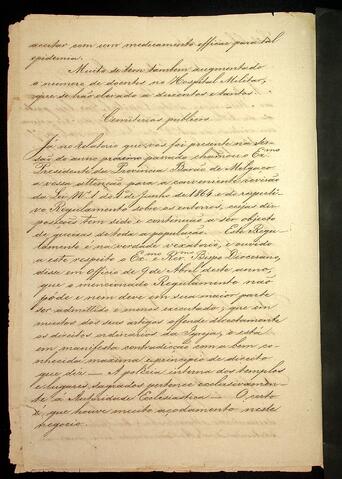 acertar com um medicamento efficaz para tal
epidemia.
Muito se tem tambem augmentado
o numero de doentes no Hospital Militar,
que se hão elevado a duzentos e tantos.
Cemiterios publicos
Já no Relatorio que vos foi presente na Ses-
são do anno proximo passado chamou o Exmo
Presidente da Provincia Barão de Melgaço
a vossa attenção para a conveniente revisão
da Lei Nº 1 de 4 de Junho de 1864 e do respecti-
vo Regulamento sobre os enterros, cujas dis-
posições tem sido e continuão a ser objecto
de queixas de toda a população. Este Regu-
lamento é na verdade vexatorio, e ouvido
a este respeito o Exmo e Revmo Bispo Diocesano,
disse em officio de 9 de Abril deste anno,
que o mencionado Regulamento não
póde e nem deve em sua maior parte
ser admittido e menos executado; que em
muitos dos seus artigos offende directamente
os direitos ordinarios da Igreja, e está
em manifesta contradicção com a bem co-
nhecida maxima e principio de direito
que diz — A policia interna dos templos
e lugares sagrados pertence exclusivamen-
te á Authoridade Ecclesiastica — O certo
é, que houve muito açodamento neste
negocio.